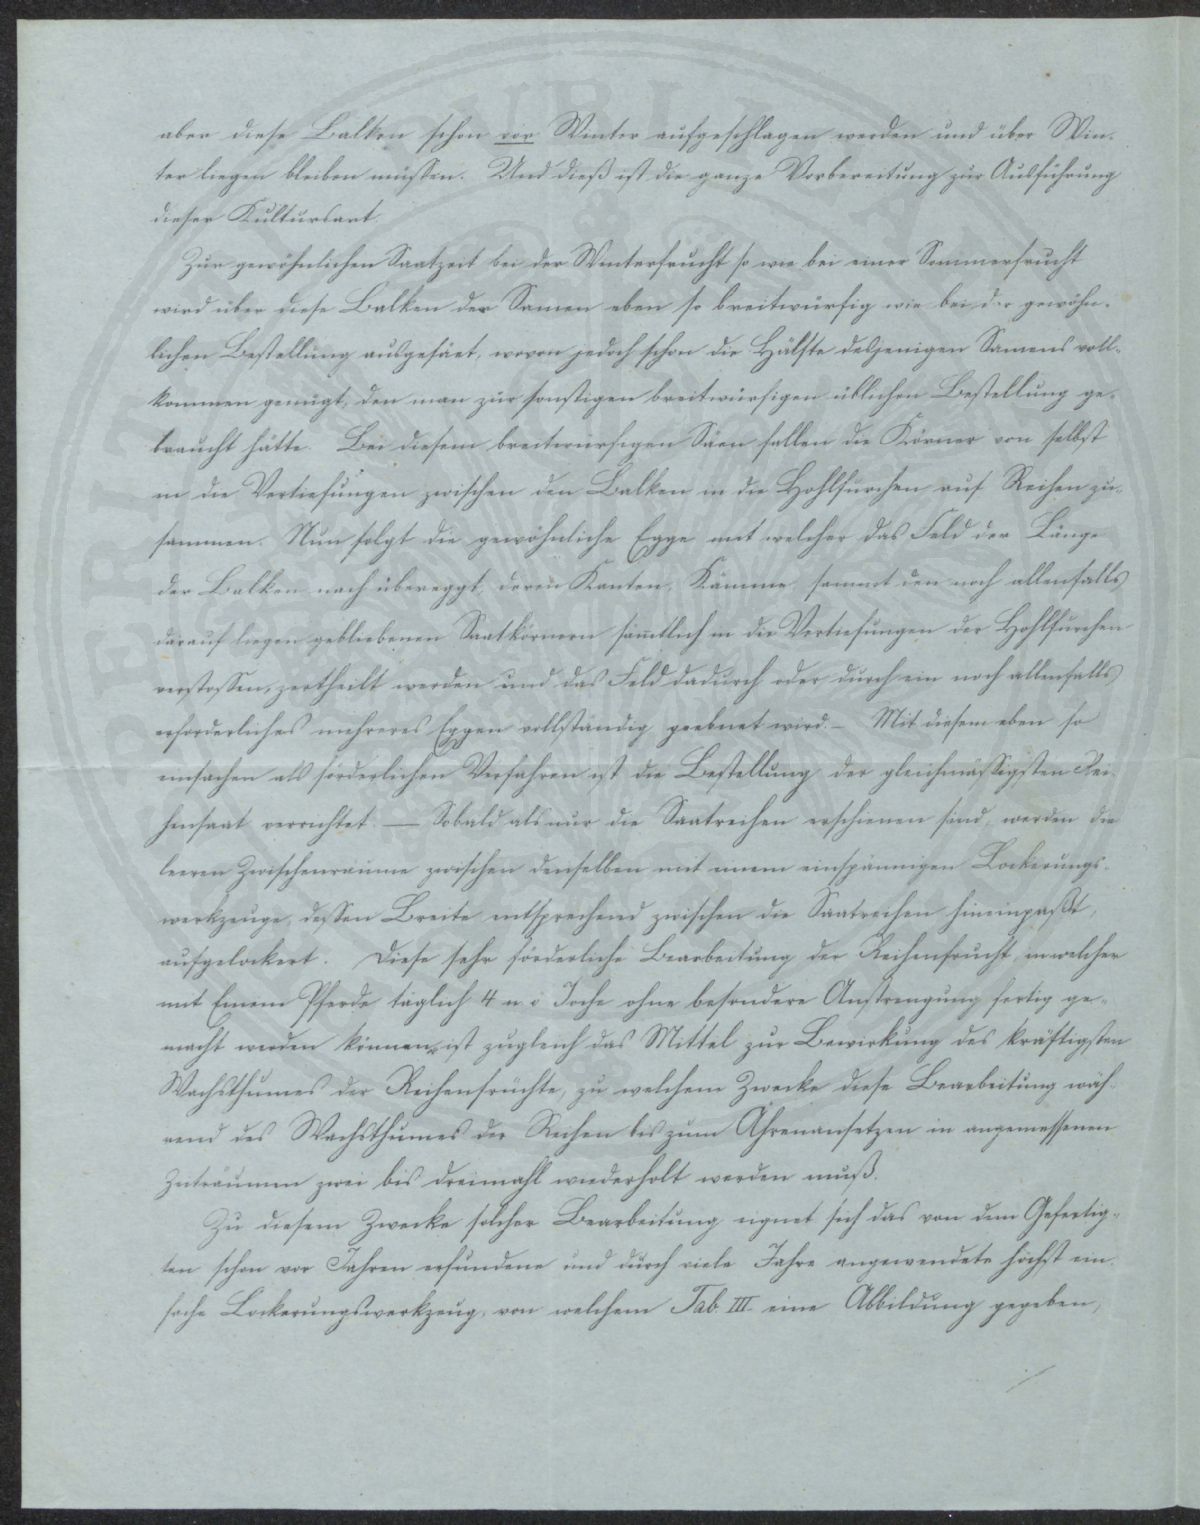 aber diese Balken schon vor Winter aufgeschlagen werden und über Win-
ter liegen bleiben müssen. Und dieß ist die ganze Vorbereitung zur Ausführung
dieser Kultursart.
Zur gewöhnlichen Saatzeit bei der Winterfrucht so wie bei einer Sommerfrucht
wird über diese Balken der Samen eben so breitwürfig wie bei der gewöhn-
lichen Bestellung ausgesäet, wovon jedoch schon die Hälfte desjenigen Samens voll-
kommen genügt, den man zur sonstigen breitwürfigen üblichen Bestellung ge-
braucht hätte. Bei diesem breitwürfigen Säen fallen die Körner von selbst
in die Vertiefungen zwischen den Balken in die Hohlfurchen auf Reihen zu-
sammen. Nun folgt die gewöhnliche Egge mit welcher das Feld der Länge
der Balken nach übereggt, deren Kanten, Kämme sammt den noch allenfalls
darauf liegen gebliebenen Saatkörnern sämtlich in die Vertiefungen der Hohlfurchen
verstossen, zertheilt werden und das Feld dadurch oder durch ein noch allenfalls
erforderliches mehreres Eggen vollständig geebnet wird. — Mit diesem eben so
einfachen als förderlichen Verfahren ist die Bestellung der gleichmässigsten Rei-
hensaat verrichtet. — Sobald als nur die Saatreihen erschienen sind, werden die
leeren Zwischenräume zwischen denselben mit einem einspännigen Lockerungs-
werkzeuge, dessen Breite entsprechend zwischen die Saatreihen hineinpaßt,
aufgelockert. Diese sehr förderliche Bearbeitung der Reihenfrucht, in welcher
mit Einem Pferde täglich 4 Joche ohne besondere Anstrengung fertig ge-
macht werden können, ist zugleich das Mittel zur Bewirkung des kräftigsten
Wachsthumes der Reihenfrüchte, zu welchem Zwecke diese Bearbeitung wäh-
rend des Wachsthumes der Reihen bis zum Ährenansetzen in angemessenen
Zeiträumen zwei bis dreimahl wiederholt werden muß.
Zu diesem Zwecke solcher Bearbeitung eignet sich das von dem Gefertig-
ten schon vor Jahren erfundene und durch viele Jahre angewendete höchst ein-
fache Lockerungswerkzeug, von welchem Tab. III. eine Abbildung gegeben,